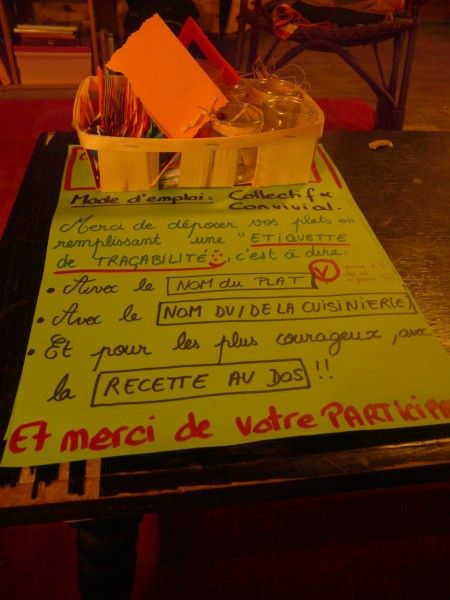 Mode d'emploi: Collectif &
Convivial.
Merci de déposer vos plats en
remplissant une "ETIQUETTE
de TRAÇABILITÉ, c'est à dire:
• Avec le NOM du PLAT
• Avec le NOM DU/DE LA CUISINIER/E
• Et pour les plus courageux, avec
la RECETTE AU DOS !!
ET merci de votre PARTICIP